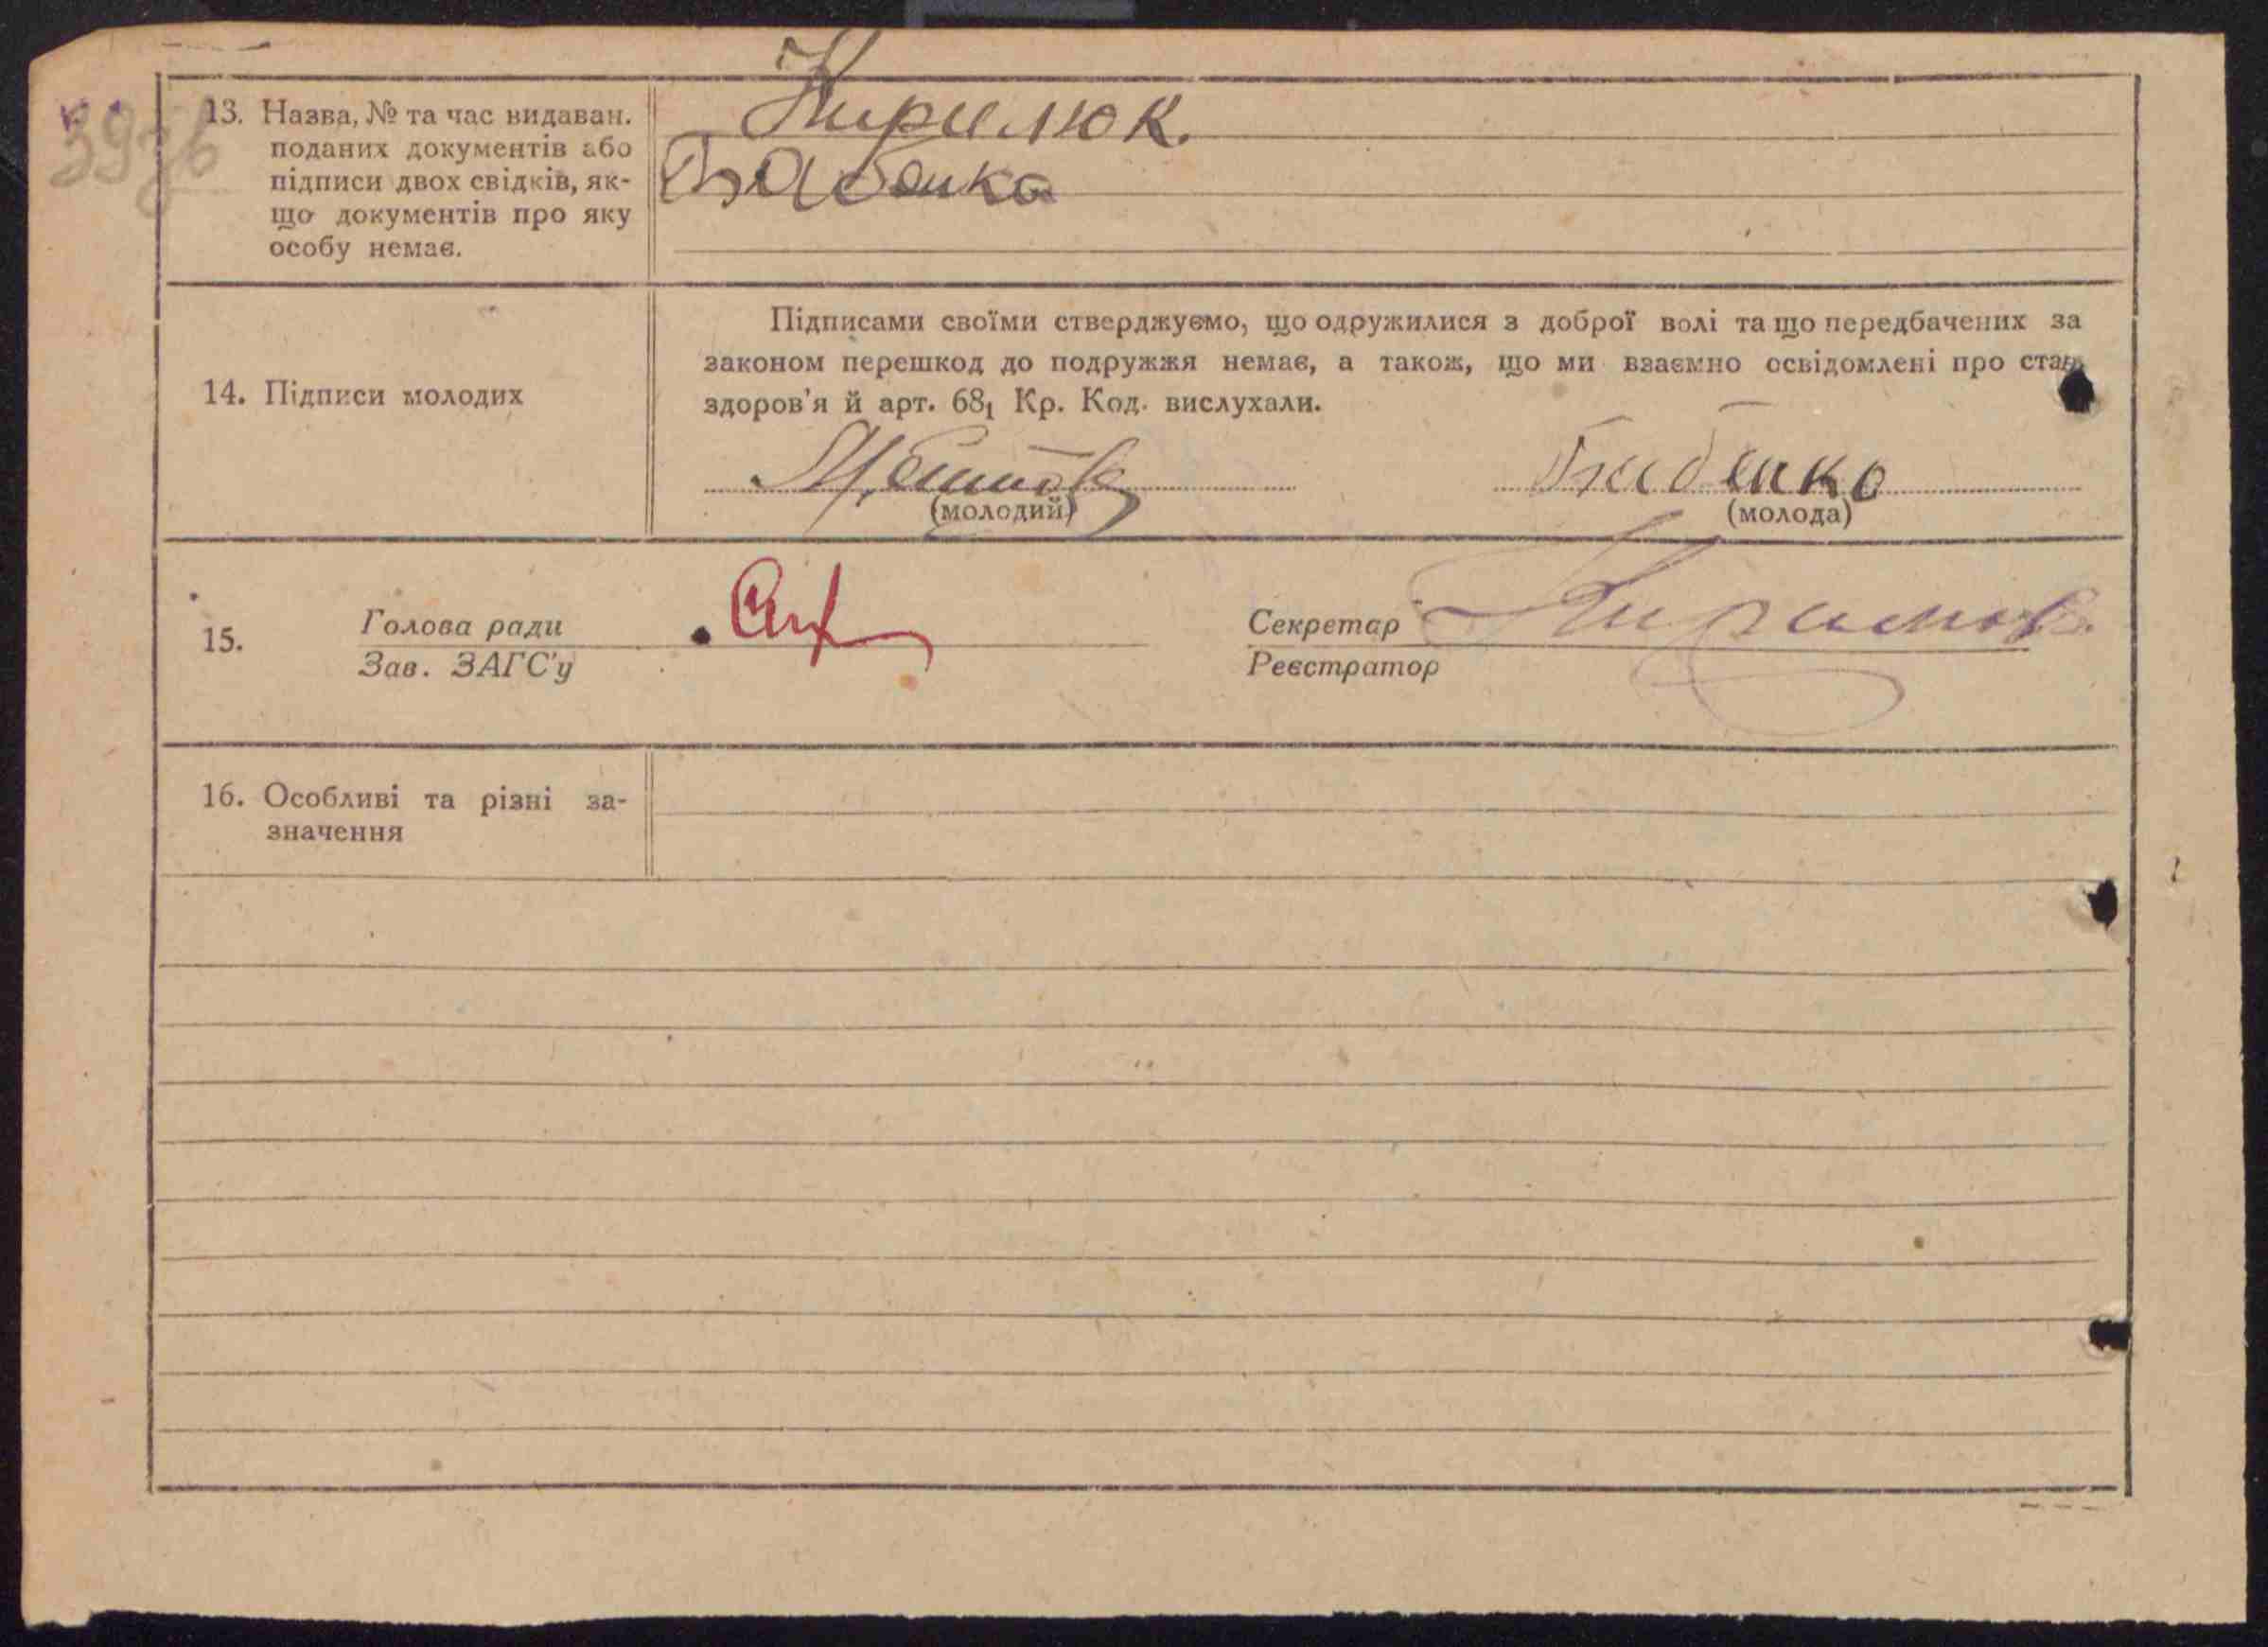 39зв
13. Назва, № та час видаван.
поданих документів або
підписи двох свідків, як-
що документів про яку
особу немає.
Кирилюк.
Бабенко
14. Підписи молодих
Підписами своїми стверджуємо, що одружилися з доброї волі та що передбачених за
законом перешкод до подружжя немає, а також, що ми взаємно освідомлені про стан
здоров'я й арт. 68₁ Кр. Код. вислухали.
Бабенко
(молодий) (молода)
15. Голова ради
Зав. ЗАГС'у
Секретар
Реєстратор
16. Особливі та різні за-
значення